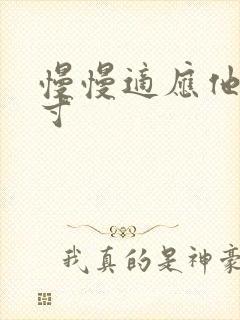 慢慢适应他
寸
我真的是神豪